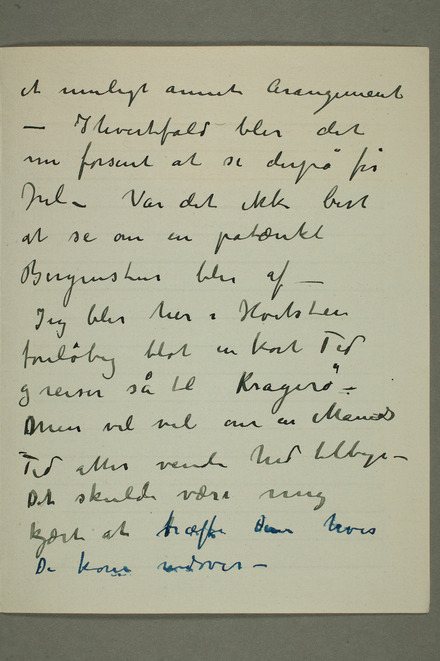 et muligt annet Arangement
– Ihvertfald bler det
nu forsent at se derpå før
Jul – Var det ikke best
at se om en påtænkt
Bergenstur bler af –
Jeg bler her i Hvitsten
foreløbig blot en kort Tid
og reiser så til Kragerø –
Men vil vel om en Maaneds
Tid atter vende hid tilbage –
Det skulde være mig
kjært at træffe Dem hvis
De kom nedover –